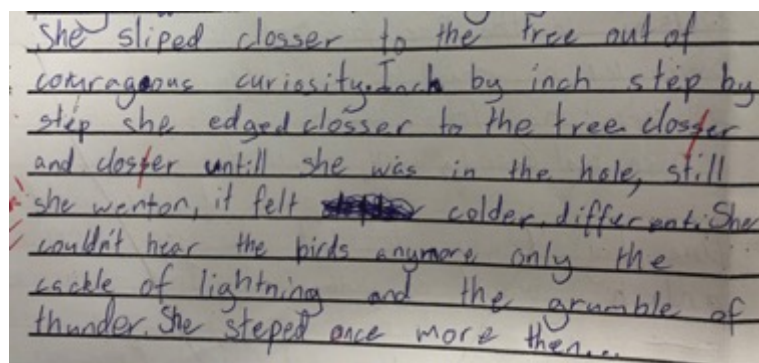 She sliped closser to the tree out of
courageous curiosity. Inch by inch step by
step she edged closser to the tree closser
and closser untill she was in the hole, still
she wenton, it felt colder, different. She
couldn't hear the birds anymore only the
cackle of lightning and the grumble of
thunder. She steped once more then...